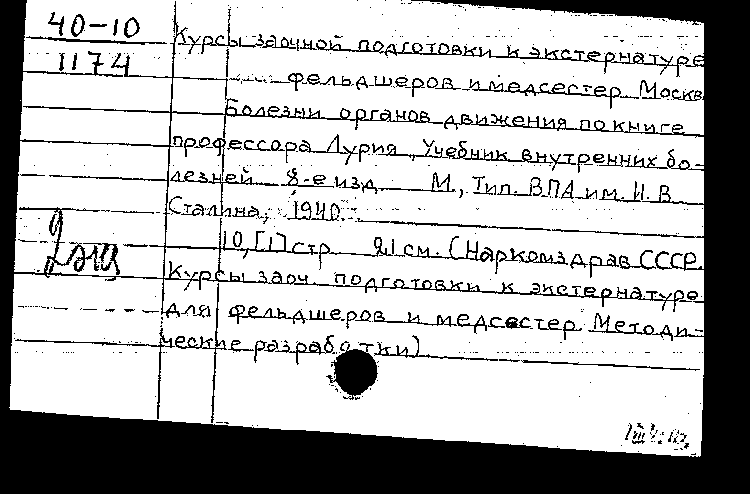 40-10
1174
Курсы заочной подготовки к экстернатуре
фельдшеров и медсестер. Москва
Болезни органов движения по книге
профессора Лурия, Учебник внутренних бо-
лезней 8-е изд. М., Тип. ВПА им. И. В.
Сталина, 1940.
10, [1] стр. 21 см. (Наркомздрав СССР.
Курсы заоч. подготовки к экстернатуре
для фельдшеров и медсестер. Методи-
ческие разработки)
2 экз